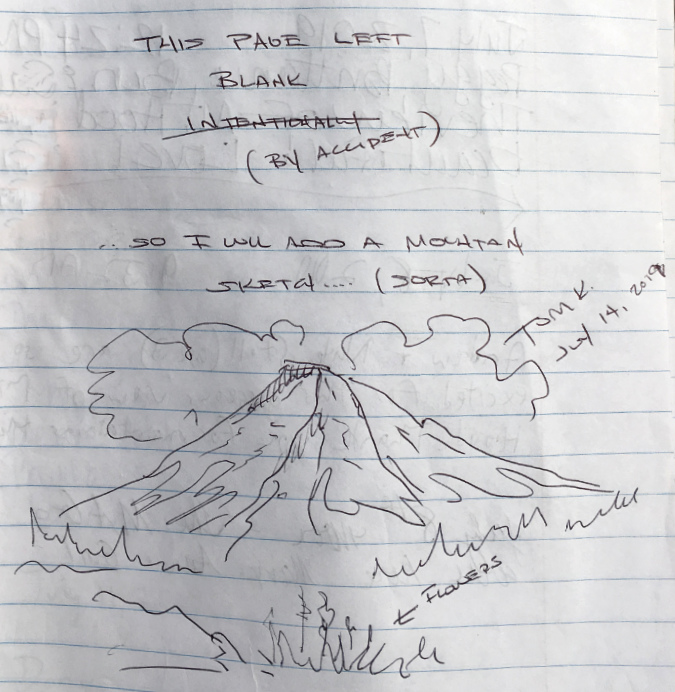 THIS PAGE LEFT
BLANK
INTENTIONALLY
(BY ACCIDENT)
...SO I WILL ADD A MOUNTAN
SKETCH.... (SORTA)
TOM K.
July 14, 2019
← FLOWERS